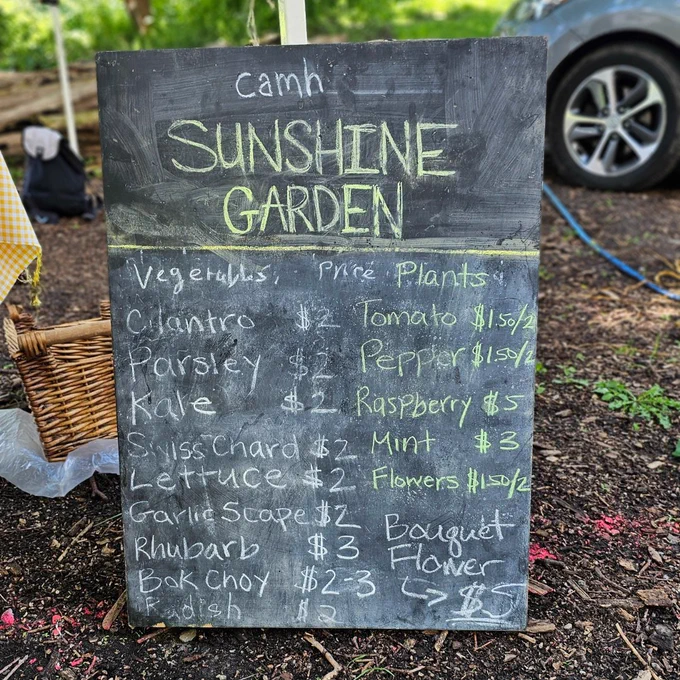 camh
SUNSHINE
GARDEN
Vegetables, Price
Cilantro $2
Parsley $2
Kale $2
Swiss Chard $2
Lettuce $2
Garlic Scape $2
Rhubarb $3
Bok Choy $2-3
Radish $2
Plants
Tomato $1.50/2
Pepper $1.50/2
Raspberry $5
Mint $3
Flowers $1.50/2
Bouquet
Flower
→ $5